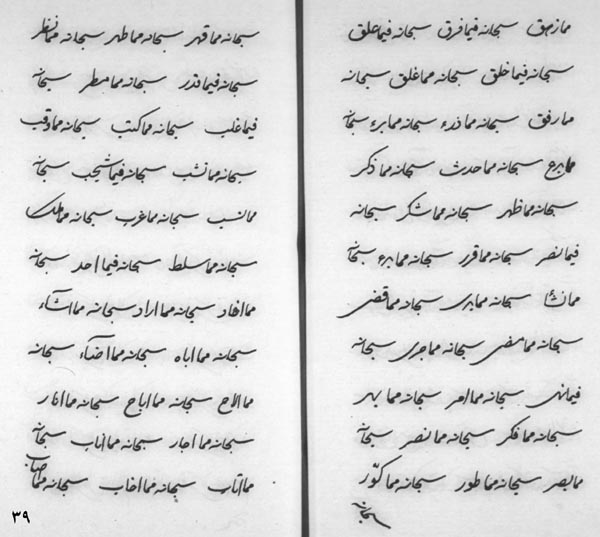 ما زهق سبحانه فیما فرق سبحانه فیما علق
سبحانه فیما خلق سبحانه مما غلق سبحانه
مما رفق سبحانه مما ذرء سبحانه مما برء سبحانه
سبحانه مما حدث سبحانه مما ذکر
سبحانه مما ظهر سبحانه مما شکر سبحانه
فیما نصر سبحانه مما قرر سبحانه مما برء سبحانه
مما نشا سبحانه مما بری سبحانه مما قضی
سبحانه مما مضی سبحانه مما جری سبحانه
فیما نهی سبحانه مما امر سبحانه مما بهر
سبحانه مما فکر سبحانه مما نصر سبحانه
مما بصر سبحانه مما طور سبحانه مما کوّر
سبحانه
سبحانه مما قهر سبحانه مما طهر سبحانه
سبحانه فیما قدر سبحانه مما سطر سبحانه
فیما غلب سبحانه مما کتب سبحانه مما وقب
سبحانه مما نشب سبحانه سبحانه
مما نسب سبحانه مما غرب سبحانه مما ملک
سبحانه مما سلط سبحانه فیما احد سبحانه
مما افاد سبحانه مما اراد سبحانه مما اشآء
سبحانه مما اباه سبحانه مما اضآء سبحانه
مما الاح سبحانه مما اباح سبحانه مما انار
سبحانه مما اجار سبحانه مما اناب سبحانه
مما اتاب سبحانه مما اخاب سبحانه مما اصاب
٣٩